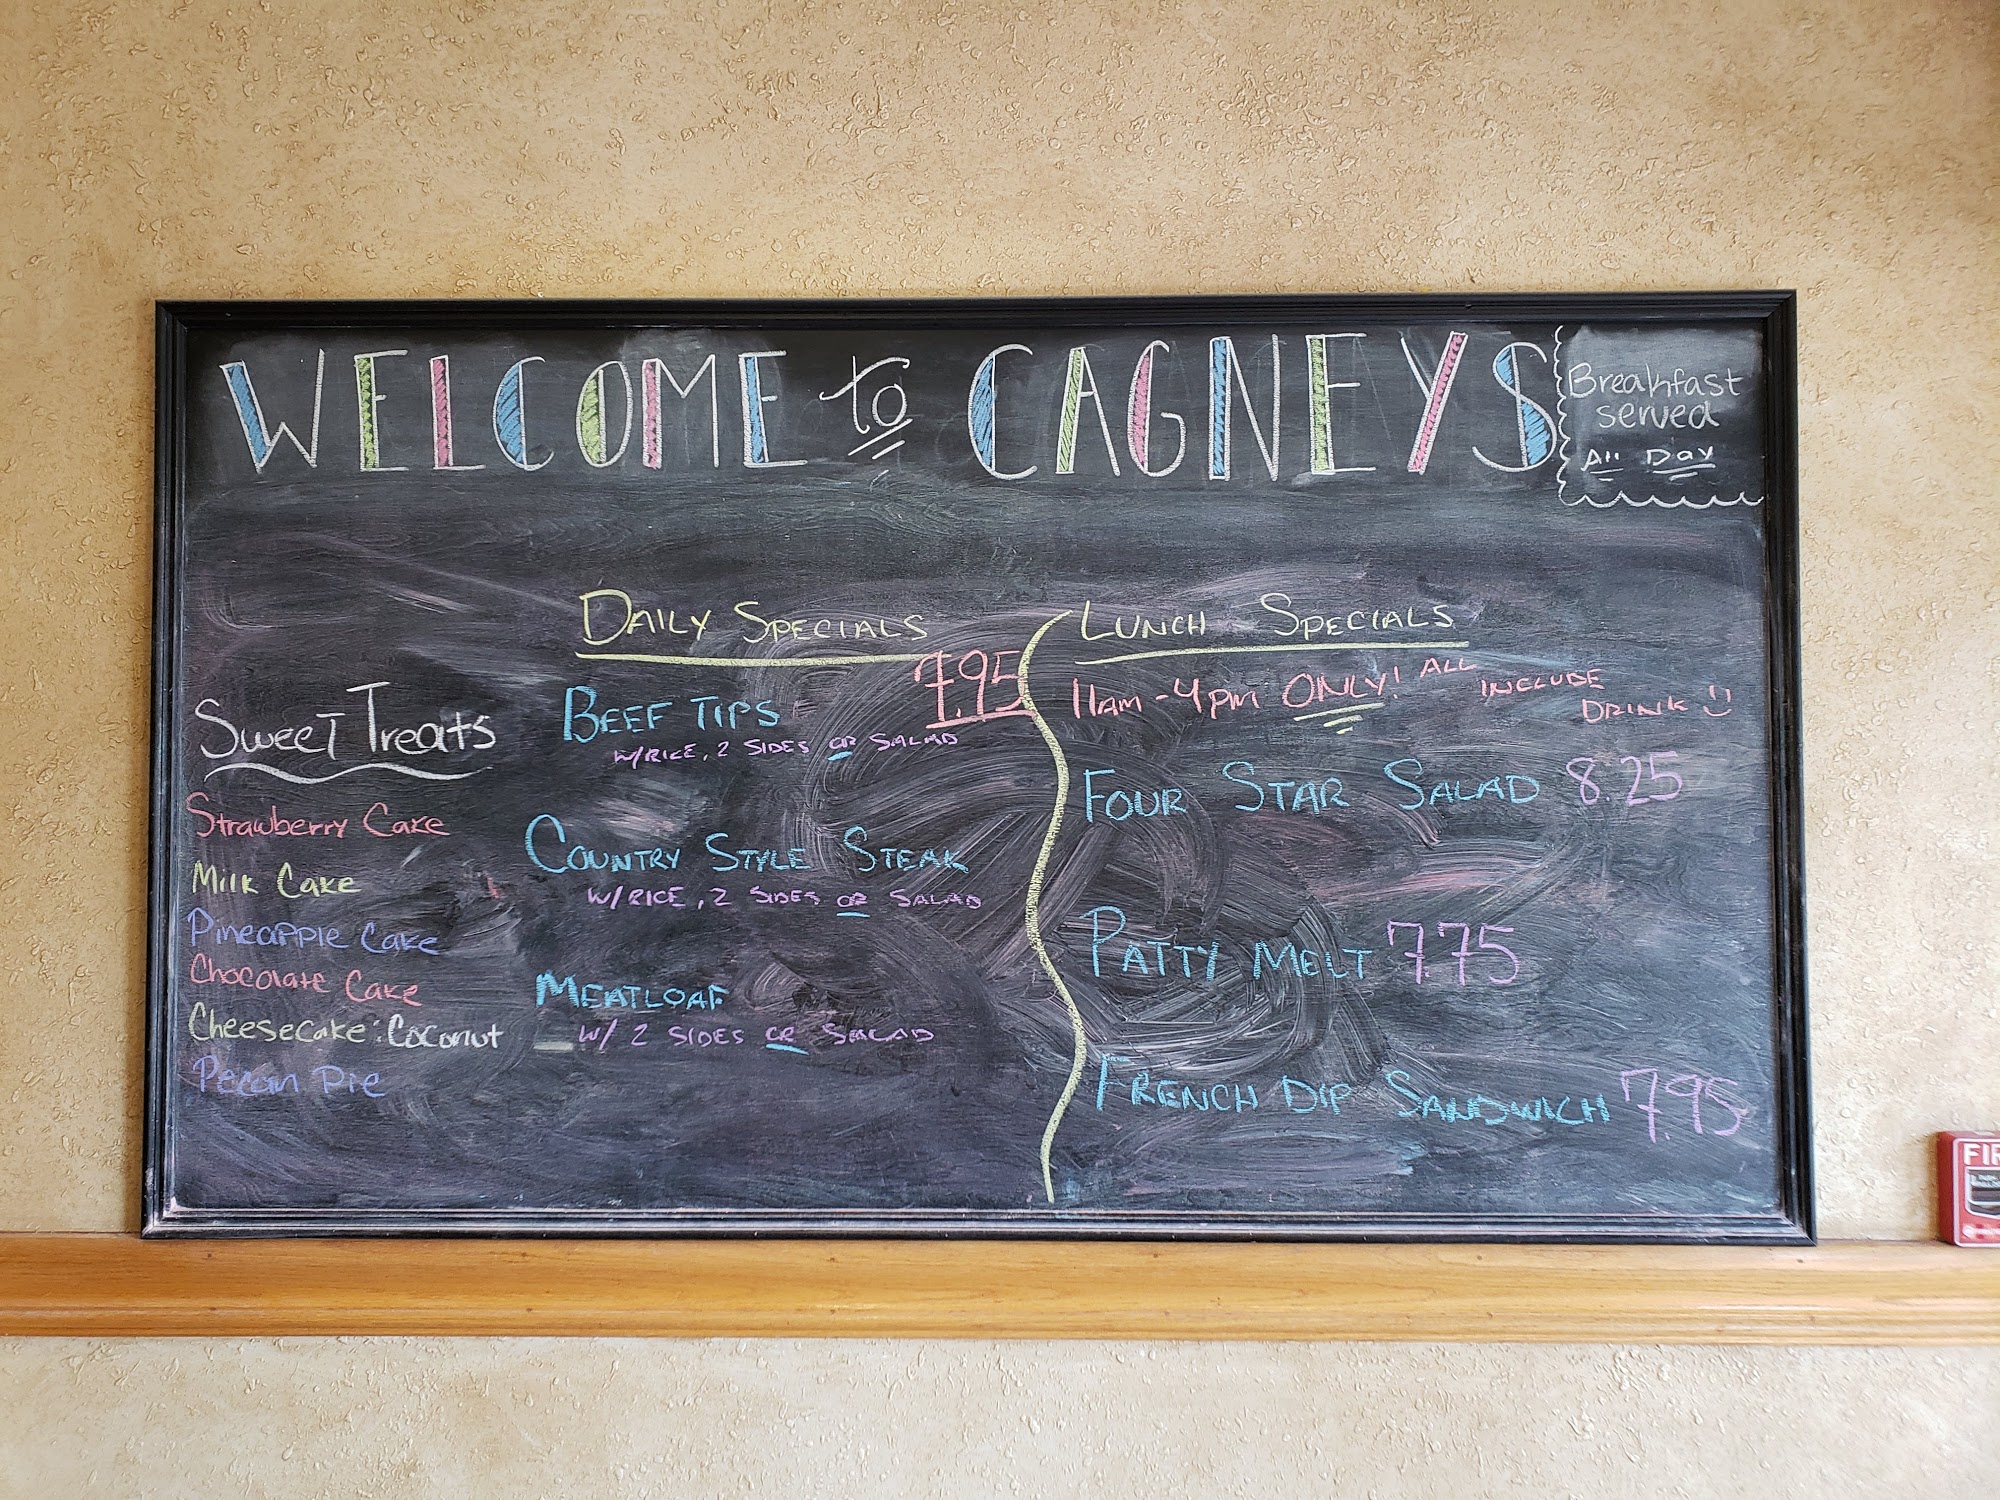 WELCOME to CAGNEYS
Breakfast
served
All Day
Sweet Treats
Strawberry Cake
Milk Cake
Pineapple Cake
Chocolate Cake
Cheesecake: Coconut
Pecan Pie
DAILY SPECIALS
7.95
BEEF TIPS
W/RICE, 2 SIDES OR SALAD
COUNTRY STYLE STEAK
W/RICE, 2 SIDES OR SALAD
MEATLOAF
W/ 2 SIDES OR SALAD
LUNCH SPECIALS
11am-4pm ONLY! ALL INCLUDE
DRINK
FOUR STAR SALAD 8.25
PATTY MELT 7.75
FRENCH DIP SANDWICH 7.95